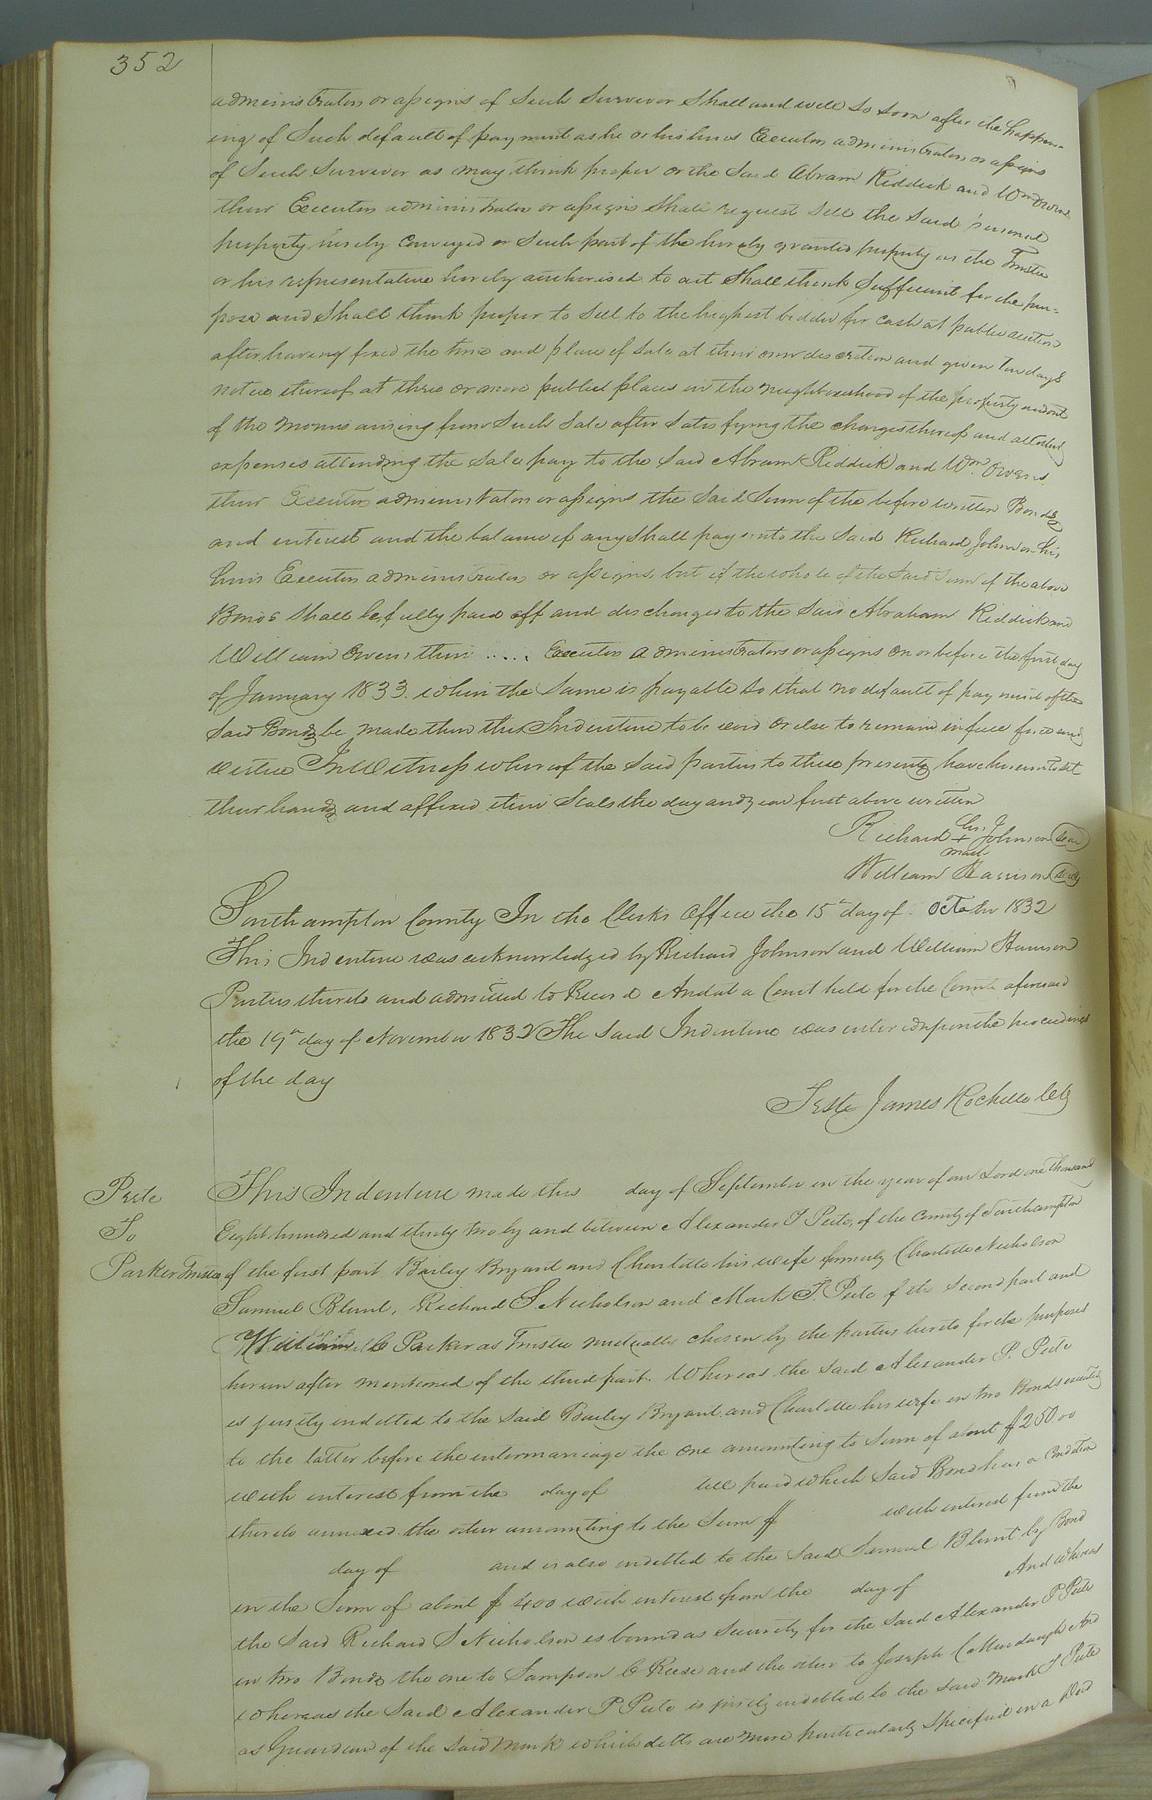 352
administrators or assigns of Such Survivor Shall and will So Soon after the happen-
ing of Such default of payment as he or his heirs Executors administrators or assigns
of Such Survivor as may think proper or the Said Abram Riddick and Wm Owens
their Executors administrators or assigns Shall request Sell the Said personal
property hereby Conveyed or Such part of the hereby granted property as the Trustee
or his representative hereby authorised to act Shall think Sufficient for the pur-
pose and Shall think proper to Sell to the highest bidder for Cash at public auction
after having fixed the time and place of Sale at their own discretion and given Ten days
notice thereof at three or more public places in the neighbourhood of the property and out
of the monies arising from Such Sale after Satisfying the charges thereof and all other
expenses attending the Sale pay to the Said Abram Riddick and Wm Owens
their Executors administrators or assigns the Said Sum of the before written Bonds
and interest and the balance if any Shall pay unto the Said Richard Johnson his
heirs Executors administrators or assigns, but if the whole of the Said Sum of the above
Bonds Shall be fully paid off and discharged to the Said Abraham Riddick and
William Owens their ..... Executors administrators or assigns on or before the first day
of January 1833 when the Same is payable So that no default of payment of the
Said Bonds be made then this Indenture to be void or else to remain in full force and
virtue In Witness whereof the Said parties to these presents have hereunto set
their hands and affixed their Seals the day and year first above written
Richard his + mark Johnson Seal
William Harrison Seal
Southampton County In the Clerks Office the 15th day of October 1832
This Indenture was acknowledged by Richard Johnson and William Harrison
Parties thereto and admitted to Record And at a Court held for the County aforesaid
the 19th day of November 1832 The Said Indenture was entered upon the proceedings
of the day
Teste James Rochelle Clk
Peete
To
Parker Trustee
This Indenture made this day of September in the year of our Lord one thousand
Eight hundred and thirty two by and between Alexander P Peete, of the County of Southampton
of the first part Bailey Bryant and Charlotte his wife formerly Charlotte Nicholson
Samuel Blunt, Richard S. Nicholson and Mark S. Peete of the Second part and
William C Parker as Trustee mutually chosen by the parties hereto for the purposes
herein after mentioned of the third part. Whereas the Said Alexander P. Peete
is justly indebted to the Said Bailey Bryant and Charlotte his wife in two Bonds executed
to the latter before the intermarriage the one amounting to Sum of about $250.00
with interest from the day of till paid which Said Bond has a Condition
thereto annexed. the other amounting to the Sum $ with interest from the
day of and is also indebted to the Said Samuel Blunt by Bond
in the Sum of about $400 with interest from the day of And whereas
the Said Richard S Nicholson is bound as Security for the Said Alexander P Peete
in two Bonds the one to Sampson C Reese and the other to Joseph C And
whereas the Said Alexander P Peete is justly indebted to the Said Mark S Peete
as Guardian of the Said Mark which debts are more particularly Specified in a Deed